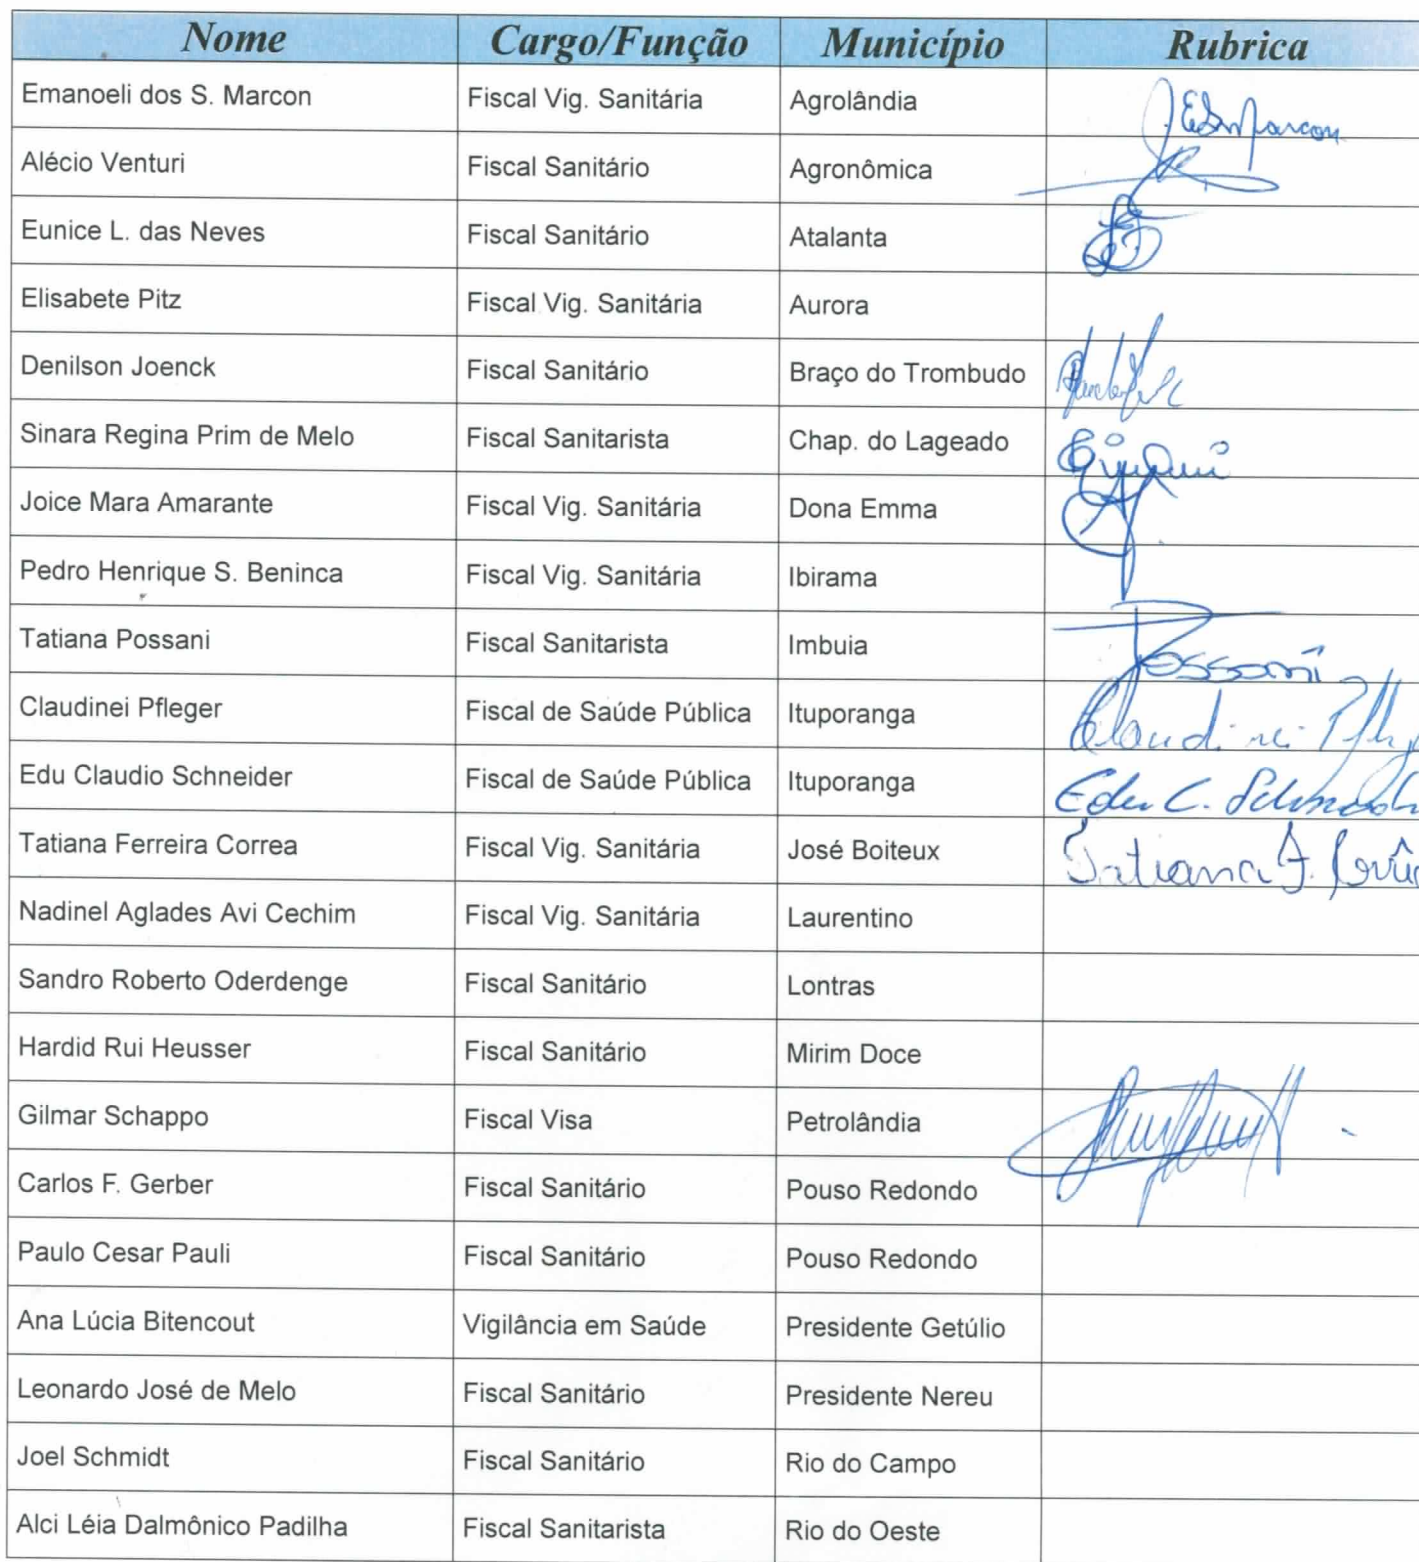 Nome Cargo/Função Município Rubrica
Emanoeli dos S. Marcon Fiscal Vig. Sanitária Agrolândia ESMarcon
Alécio Venturi Fiscal Sanitário Agronômica
Eunice L. das Neves Fiscal Sanitário Atalanta
Elisabete Pitz Fiscal Vig. Sanitária Aurora
Denilson Joenck Fiscal Sanitário Braço do Trombudo
Sinara Regina Prim de Melo Fiscal Sanitarista Chap. do Lageado
Joice Mara Amarante Fiscal Vig. Sanitária Dona Emma
Pedro Henrique S. Beninca Fiscal Vig. Sanitária Ibirama
Tatiana Possani Fiscal Sanitarista Imbuia Possani
Claudinei Pfleger Fiscal de Saúde Pública Ituporanga Claudinei
Edu Claudio Schneider Fiscal de Saúde Pública Ituporanga Edu C.
Tatiana Ferreira Correa Fiscal Vig. Sanitária José Boiteux Tatiana F.
Nadinel Aglades Avi Cechim Fiscal Vig. Sanitária Laurentino
Sandro Roberto Oderdenge Fiscal Sanitário Lontras
Hardid Rui Heusser Fiscal Sanitário Mirim Doce
Gilmar Schappo Fiscal Visa Petrolândia
Carlos F. Gerber Fiscal Sanitário Pouso Redondo
Paulo Cesar Pauli Fiscal Sanitário Pouso Redondo
Ana Lúcia Bitencout Vigilância em Saúde Presidente Getúlio
Leonardo José de Melo Fiscal Sanitário Presidente Nereu
Joel Schmidt Fiscal Sanitário Rio do Campo
Alci Léia Dalmônico Padilha Fiscal Sanitarista Rio do Oeste